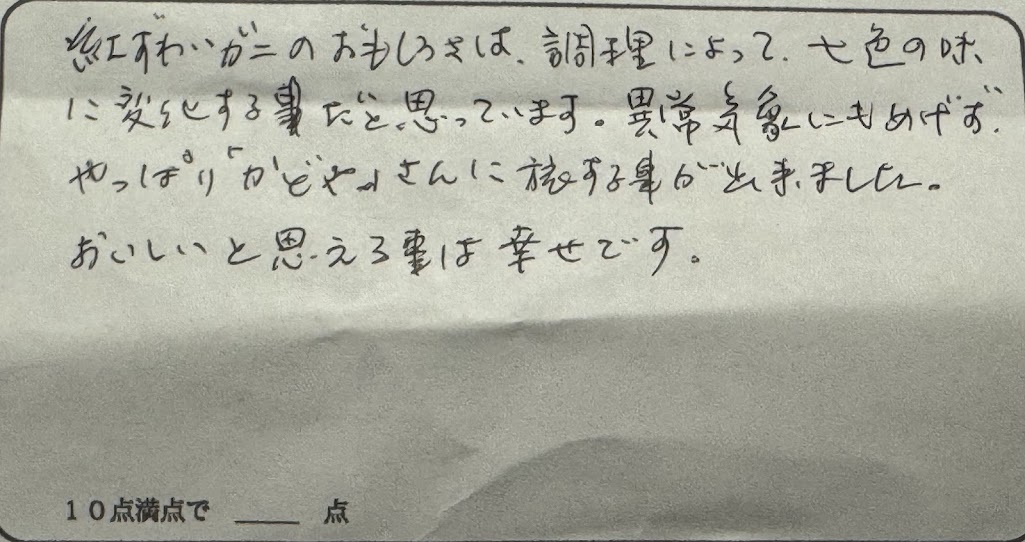 紅ずわいガニのおもしろさは、調理によって、七色の味、
に変化する事だと思っています。異常気象にもめげず、
やっぱり「かどや」さんに旅する事が出来ました。
おいしいと思える事は幸せです。
10点満点で ___ 点